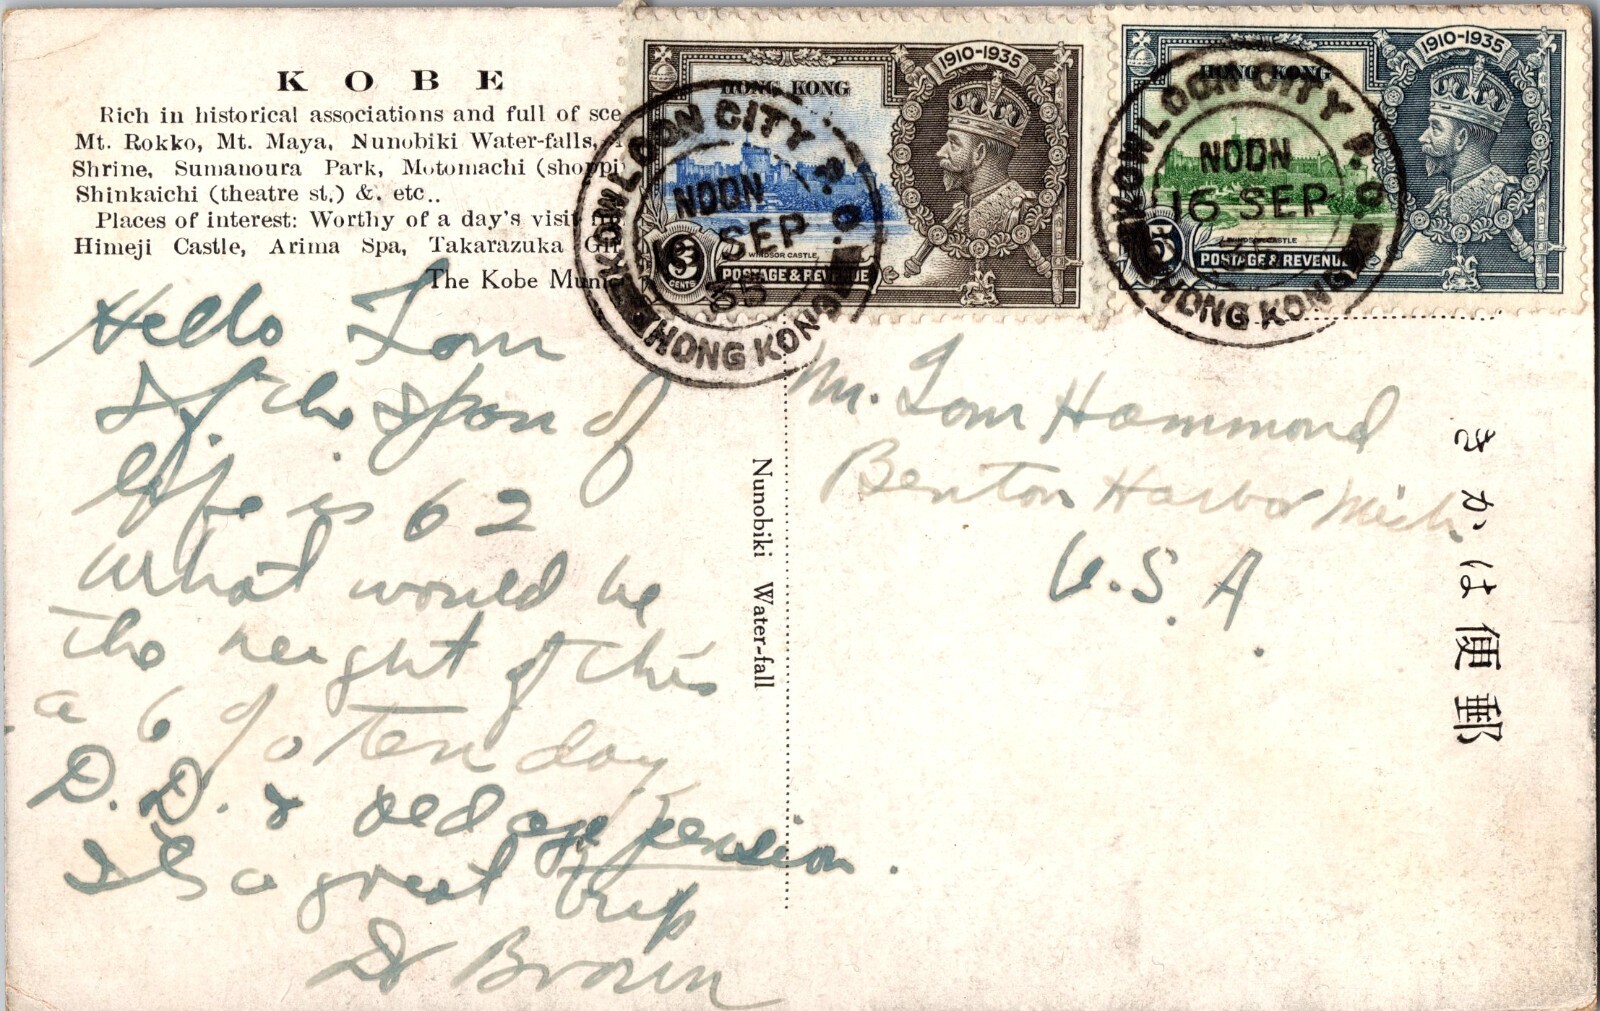 KOBE
Rich in historical associations and full of sce
Mt. Rokko, Mt. Maya, Nunobiki Water-falls,
Shrine, Sumanoura Park, Motomachi (shoppi
Shinkaichi (theatre st.) &. etc..
Places of interest: Worthy of a day's visit
Himeji Castle, Arima Spa, Takarazuka Gir
The Kobe Munic
HONG KONG
1910-1935
WINDSOR CASTLE
3
CENTS
POSTAGE & REVENUE
KOWLOON CITY P.O.
NOON
SEP
35
HONG KONG
HONG KONG
1910-1935
WINDSOR CASTLE
5
POSTAGE & REVENUE
KOWLOON CITY P.O.
NOON
16 SEP
HONG KONG
Hello Tom
If the span of
life is 62
what would be
the height of this
a 6 ft ten day
D.D. & old age pension.
Its a great trip
Dr Brown
Nunobiki Water-fall
Mr. Tom Hammond
Benton Harbor Mich.
U.S.A.
きかは便郵